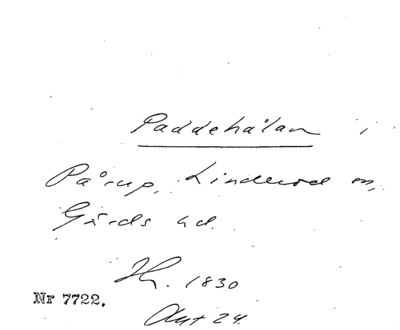 Paddehålan i
Pårup, Linderöd sn,
Gärds hd.
1830
Nr 7722.
Akt 24.